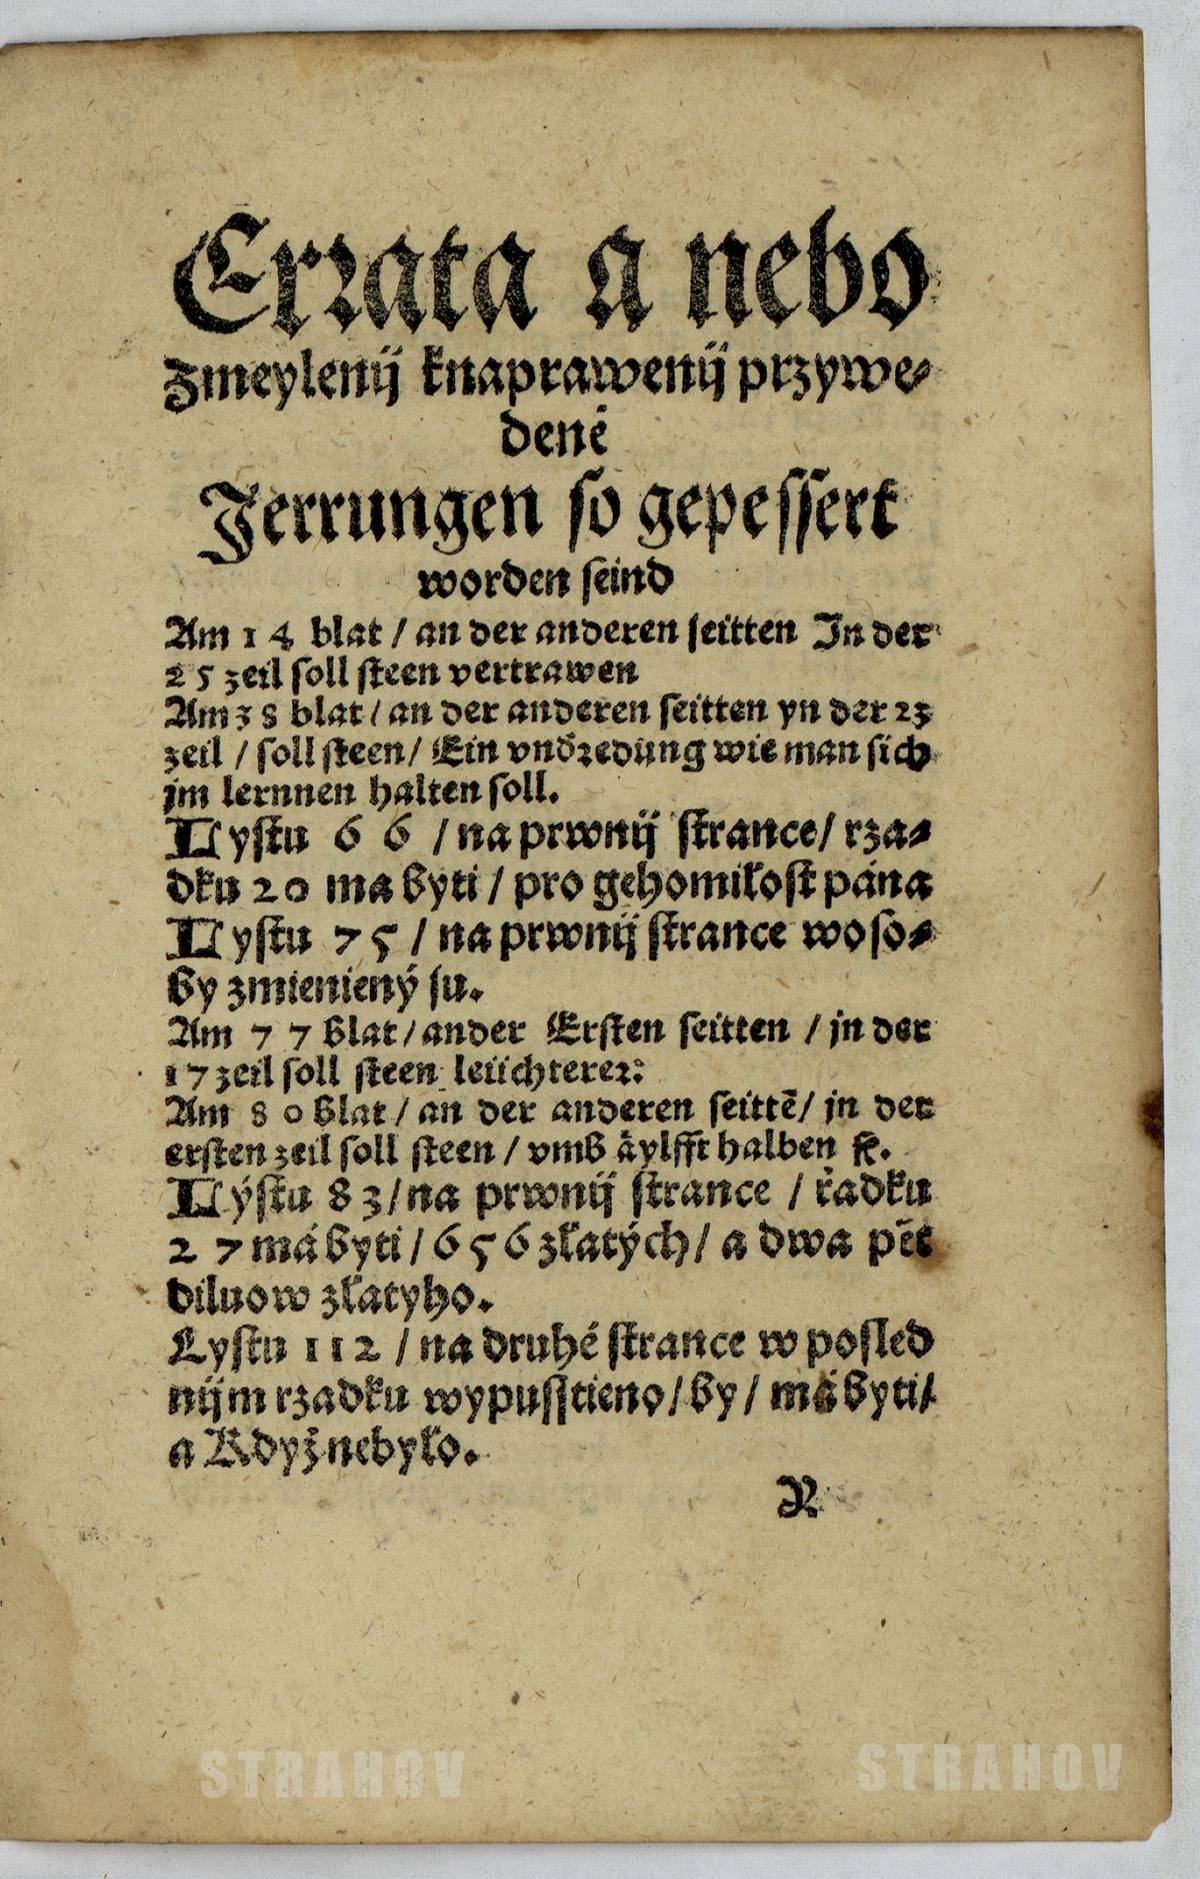 Errata a nebo
Zmeylenij knaprawenij przywe-
dené
Jerrungen so gepessert
worden seind
Am 14 blat / an der anderen seitten In der
25 zeil soll steen vertrawen
Am 38 blat / an der anderen seitten yn der 23
zeil / soll steen / Ein vndredung wie man sich
jm lernnen halten soll.
Lystu 66 / na prwnij strance / rza-
dku 20 ma byti / pro gehomilost pána
Lystu 75 / na prwnij strance woso-
by zmienieny su.
Am 77 blat / ander Ersten seitten / jn der
17 zeil soll steen leiichterer:
Am 80 blat / an der anderen seittē / jn der
ersten zeil soll steen / vmb äylfft halben ꝛc.
Lýstu 83 / na prwnij strance / řadku
27 má byti / 656 zlatých / a dwa pět
diluow zlatyho.
Lystu 112 / na druhé strance w posled
nijm rzadku wypusstieno / by / má byti /
a Když nebylo.
R
STRAHOV STRAHOV